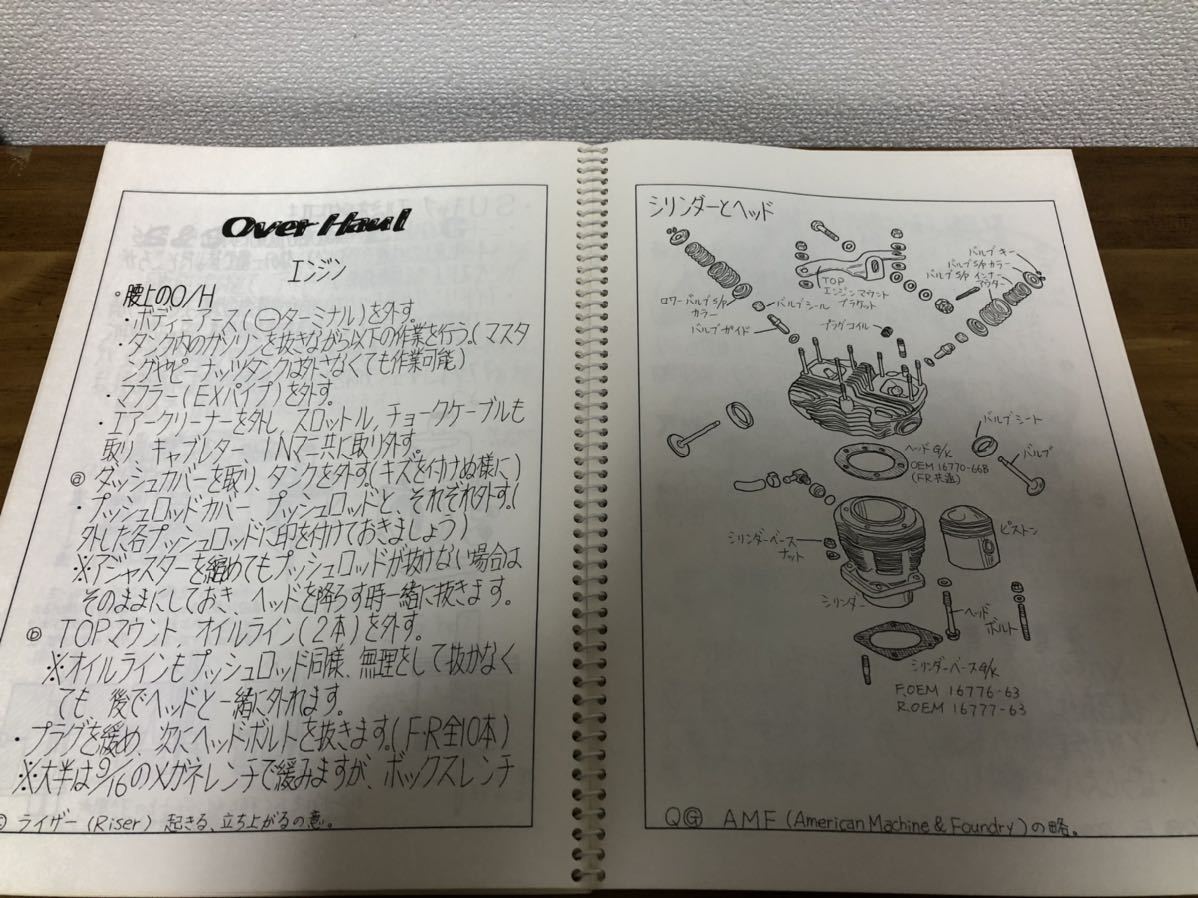 Over Haul
エンジン
。腰上のO/H
・ボディーアース(⊖ターミナル)を外す。
・タンク内のガソリンを抜きながら以下の作業を行う。(マスタ
ングやピーナッツタンクは外さなくても作業可能)
・マフラー(EXパイプ)を外す。
・エアークリーナーを外し、スロットル、チョークケーブルも
取り、キャブレター、INマニ共に取り外す。
ⓐ ダッシュカバーを取り、タンクを外す(キズを付けぬ様に)
・プッシュロッドカバー、プッシュロッドと、それぞれ外す。(
外した各プッシュロッドに印を付けておきましょう)
※アジャスターを縮めてもプッシュロッドが抜けない場合は
そのままにしておき、ヘッドを降ろす時一緒に抜きます。
ⓑ TOPマウント、オイルライン(2本)を外す。
※オイルラインもプッシュロッド同様、無理をして抜かなく
ても 後でヘッドと一緒に外れます。
・プラグを緩め、次にヘッドボルトを抜きます。(F・R全10本)
※大半は9/16のメガネレンチで緩みますが、ボックスレンチ
ライザー(Riser) 起きる、立ち上がるの意。
シリンダーとヘッド
バルブキー
バルブS/Pカラー
バルブS/P インナー
アウター
TOP
エンジンマウント
ブラケット
ロワーバルブS/P
カラー
バルブシール
バルブガイド
プラグコイル
バルブシート
バルブ
ヘッドG/K
OEM 16770-66B
(FR共通)
シリンダーベース
ナット
ピストン
シリンダー
ヘッド
ボルト
シリンダーベースG/K
F.OEM 16776-63
R.OEM 16777-63
QⒼ AMF (American Machine & Foundry)の略。